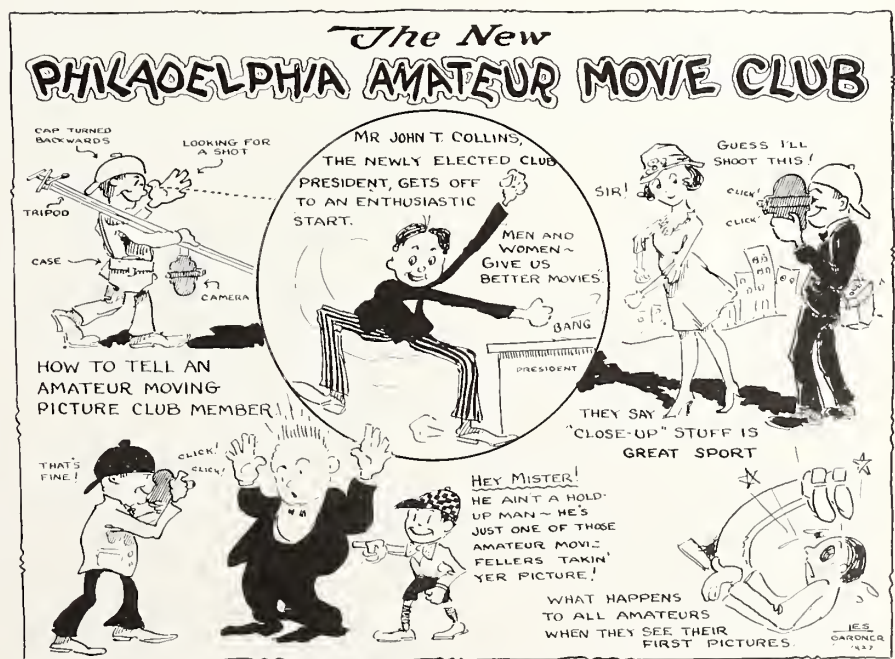 The New
PHILADELPHIA AMATEUR MOVIE CLUB
CAP TURNED
BACKWARDS
LOOKING FOR
A SHOT
TRIPOD
CASE
CAMERA
HOW TO TELL AN
AMATEUR MOVING
PICTURE CLUB MEMBER!
MR JOHN T. COLLINS,
THE NEWLY ELECTED CLUB
PRESIDENT, GETS OFF
TO AN ENTHUSIASTIC
START.
MEN AND
WOMEN ~
GIVE US
BETTER MOVIES"
BANG
PRESIDENT
SIR!
GUESS I'LL
SHOOT THIS!
CLICK!
CLICK!
THEY SAY
"CLOSE-UP" STUFF IS
GREAT SPORT
THAT'S
FINE!
CLICK!
CLICK!
HEY MISTER!
HE AINT A HOLD-
UP MAN ~ HE'S
JUST ONE OF THOSE
AMATEUR MOVIE
FELLERS TAKIN'
YER PICTURE!
WHAT HAPPENS
TO ALL AMATEURS
WHEN THEY SEE THEIR
FIRST PICTURES.
LES
GARDNER
1927